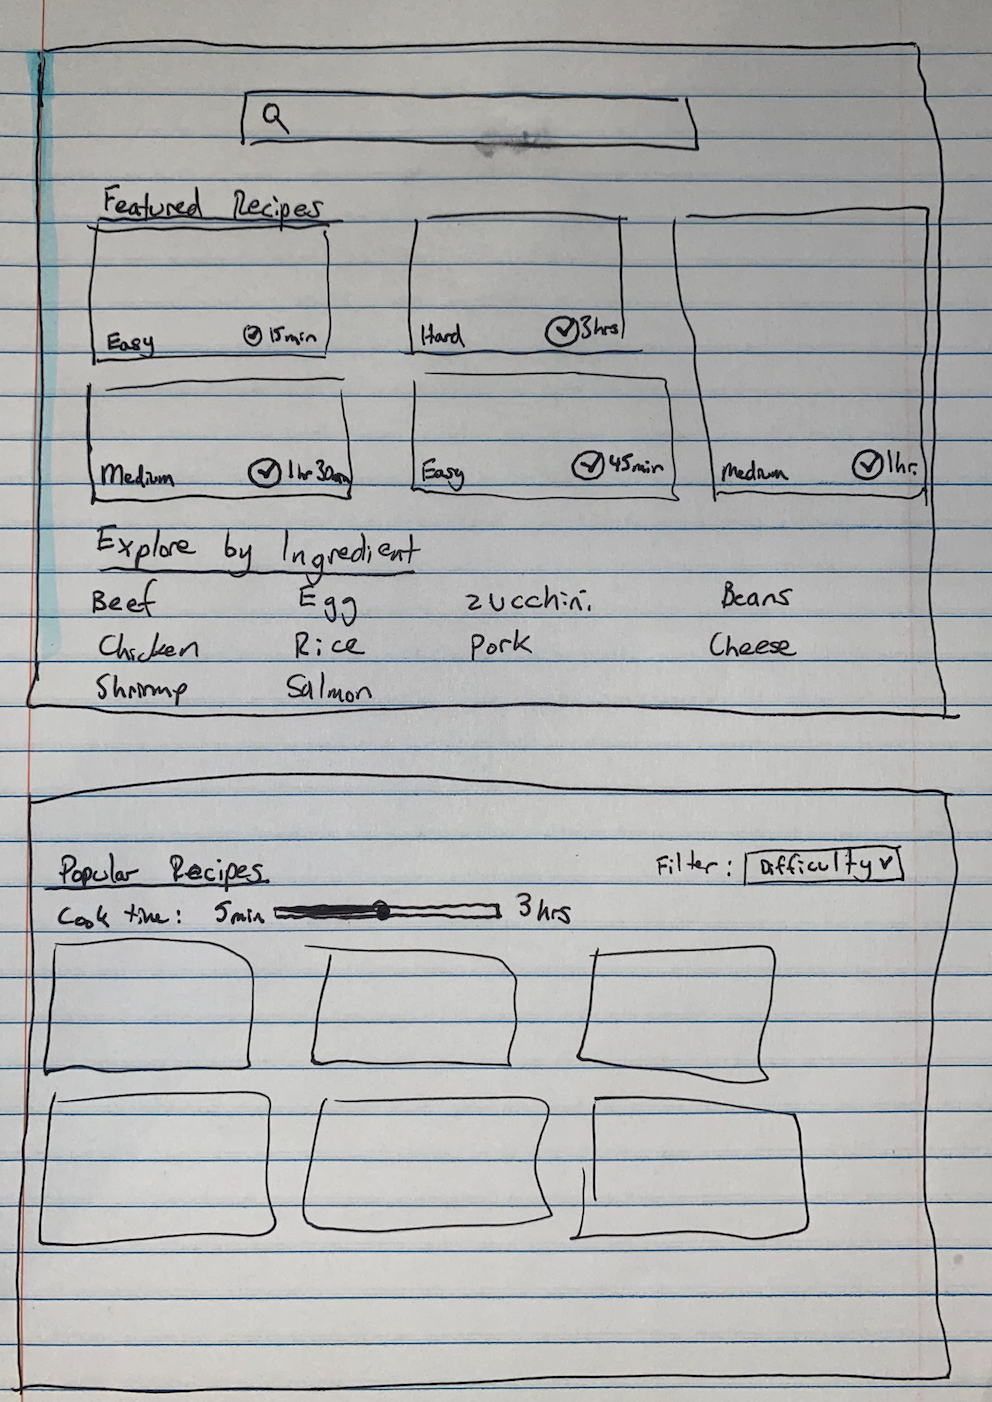 Featured Recipes
Easy 15min
Hard 3hrs
Medium 1hr 30min
Easy 45min
Medium 1hr.
Explore by Ingredient
Beef Egg zucchini Beans
Chicken Rice Pork Cheese
Shrimp Salmon
Popular Recipes
Filter: Difficulty
Cook time: 5min 3hrs